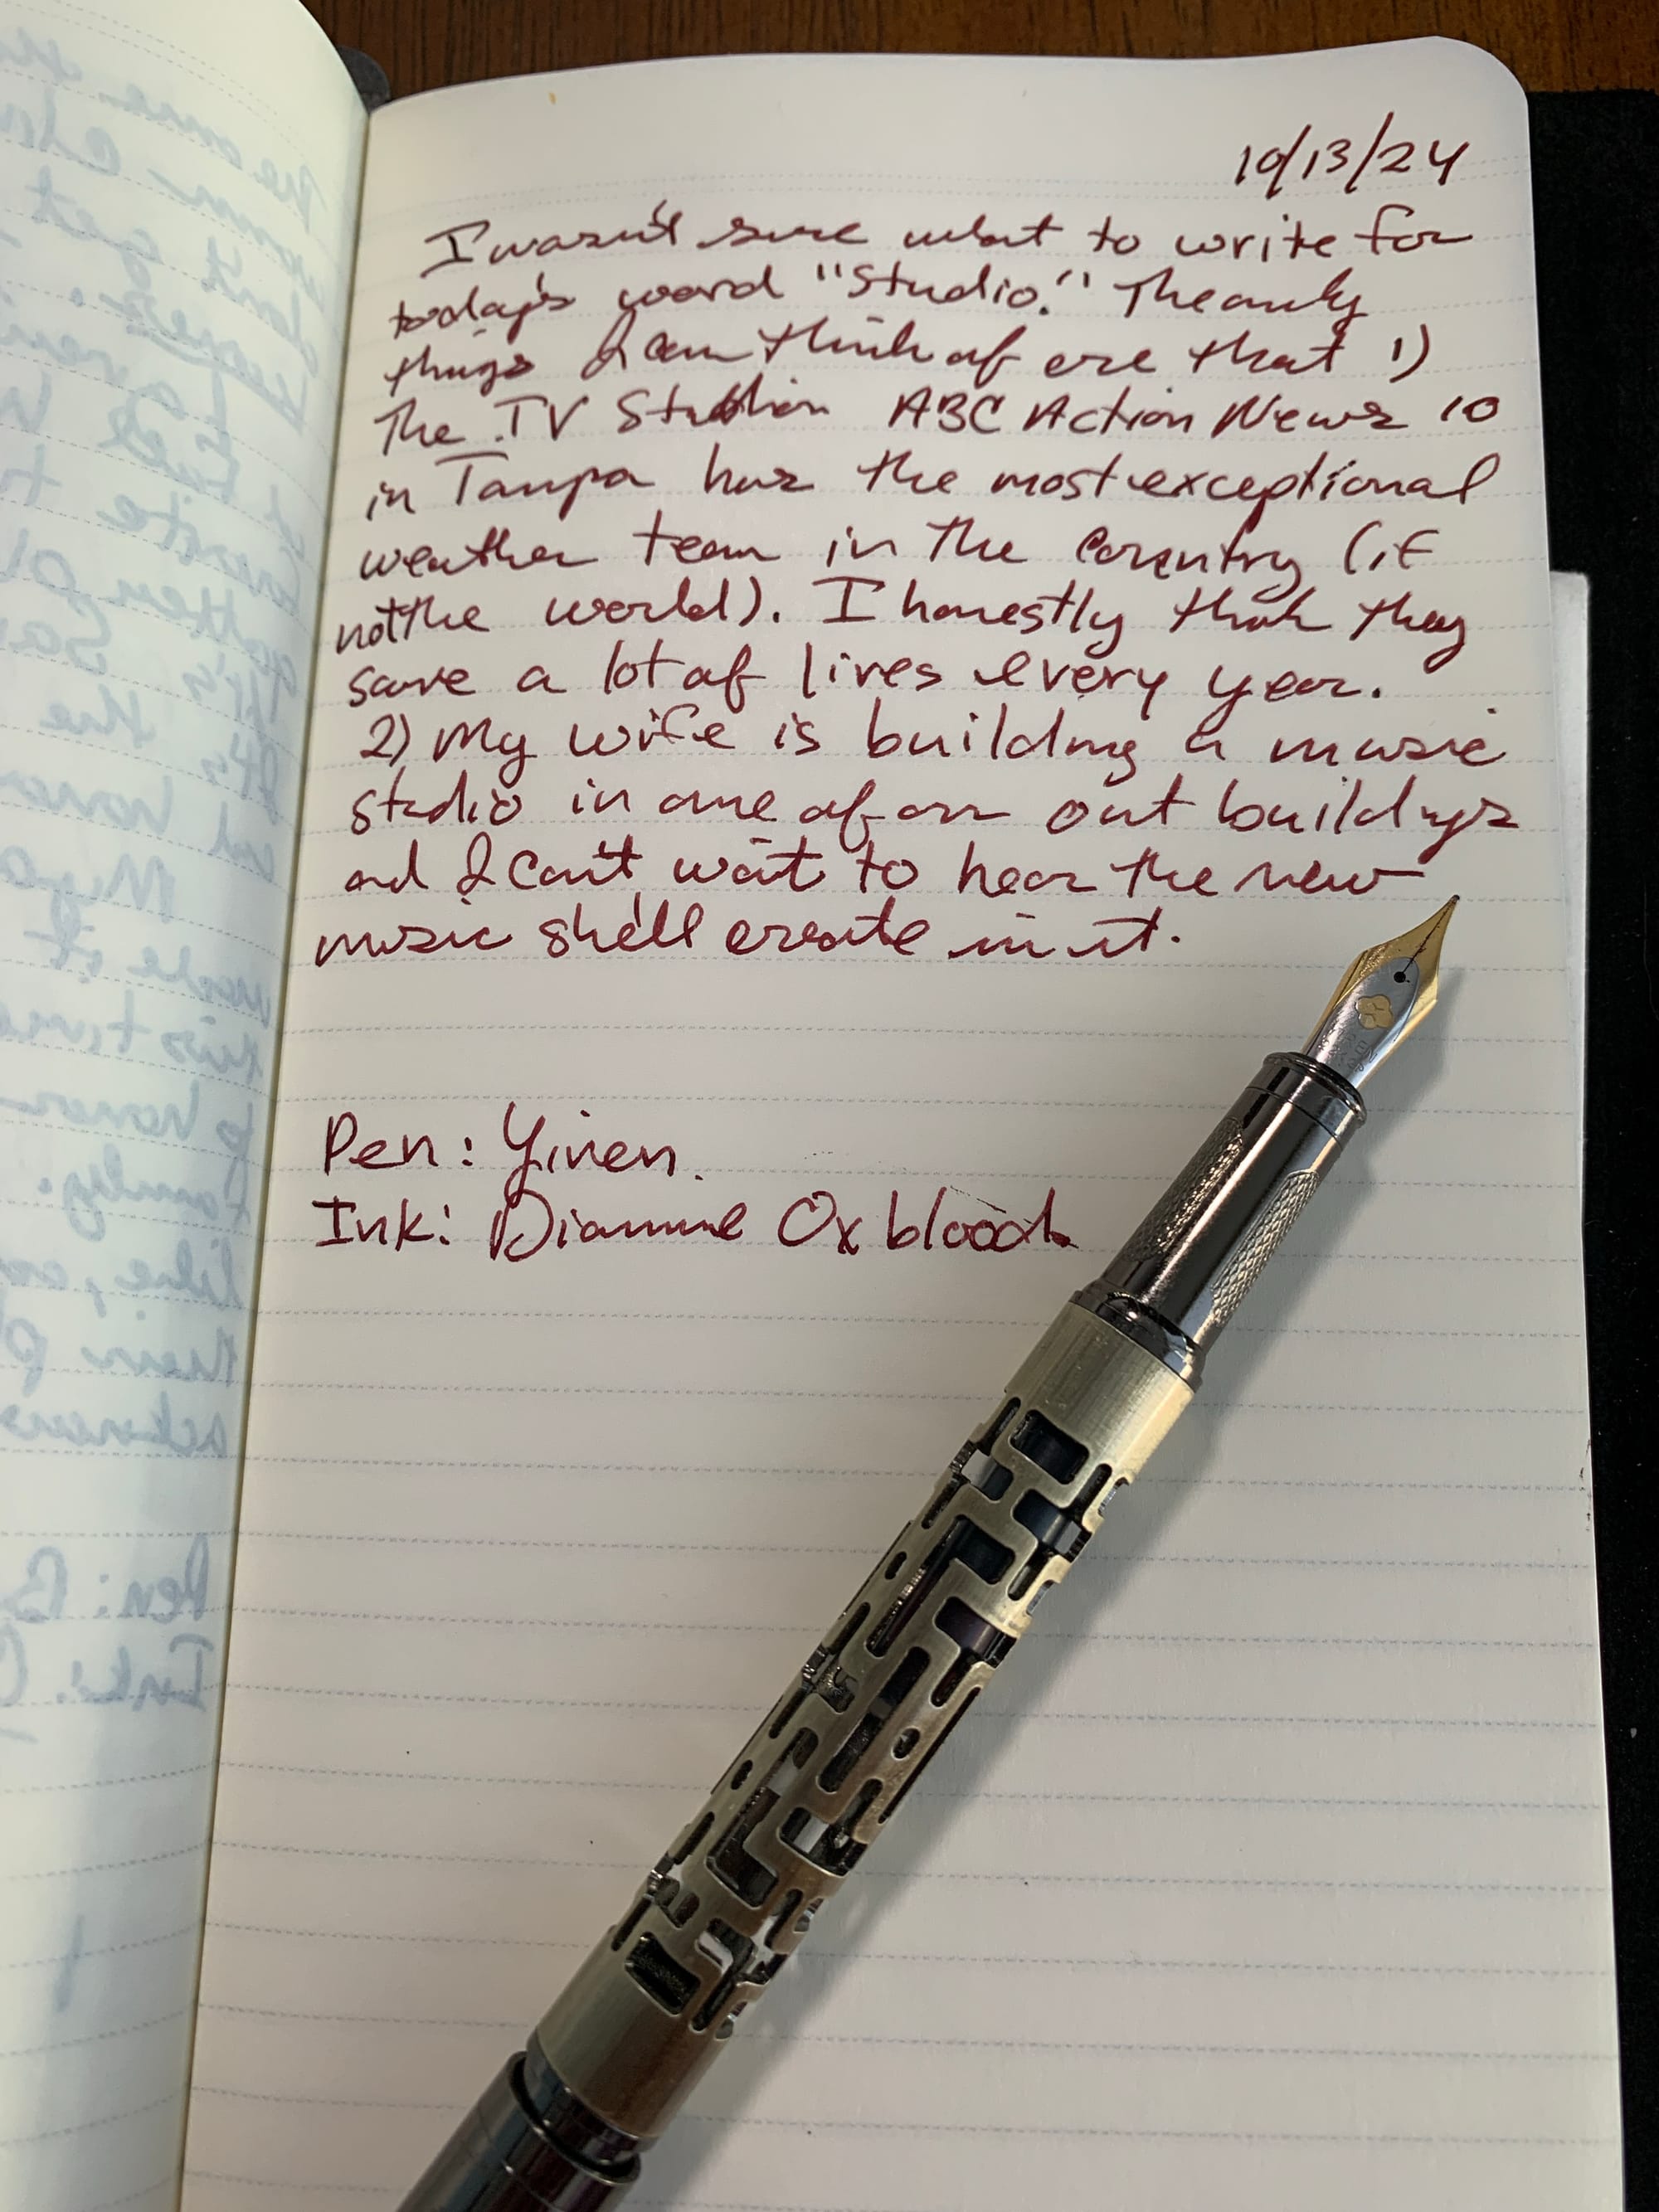 10/13/24
I wasn't sure what to write for
today's word "Studio." The only
things I can think of are that 1)
The TV Station ABC Action News 10
in Tampa has the most exceptional
weather team in the country (if
not the world). I honestly think they
save a lot of lives every year.
2) My wife is building a music
studio in one of our out buildings
and I can't wait to hear the new
music she'll create in it.
Pen: Yiren
Ink: Diamine Oxblood